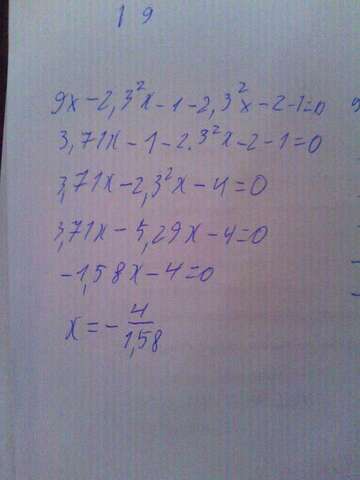 19
9x-2,3²x-1-2,3²x-2-1=0
3,71x-1-2.3²x-2-1=0
3,71x-2,3²x-4=0
3,71x-5,29x-4=0
-1,58x-4=0
x=-4/1,58